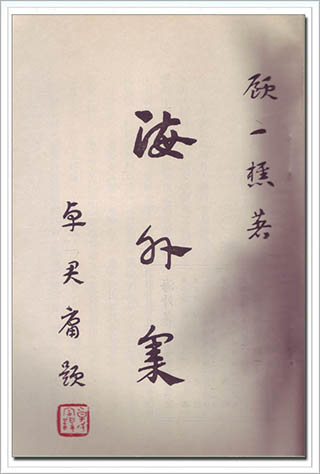 顧一樵著
海外集
卓君庸題